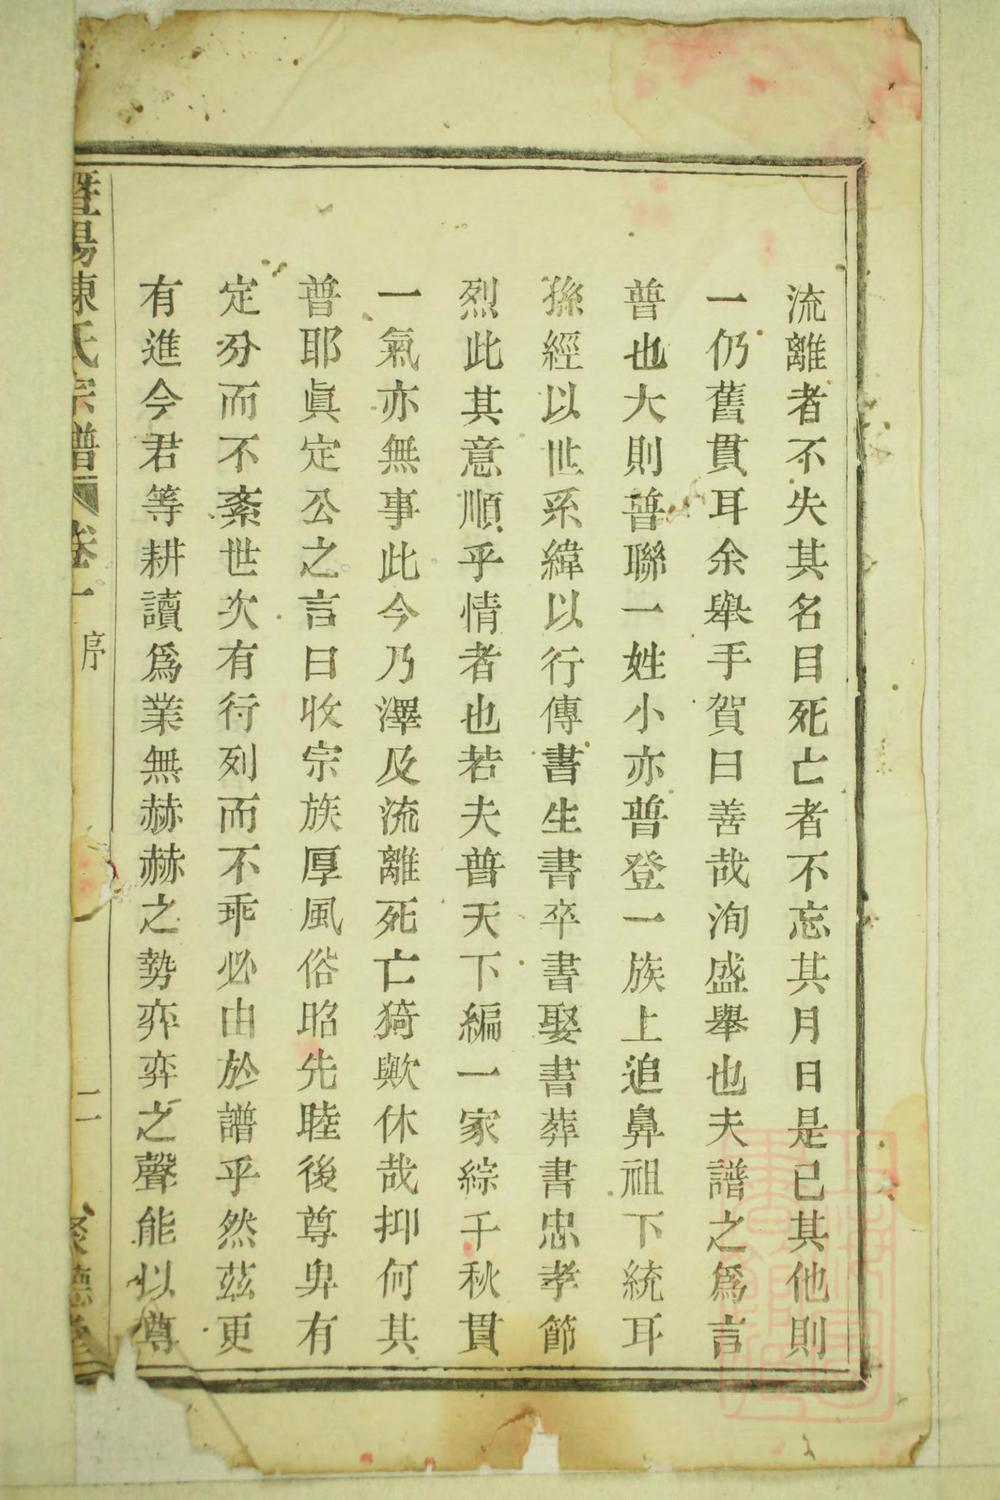 流離者不失其名目死亡者不忘其月日是已其他則
一仍舊貫耳余舉手賀曰善哉洵盛舉也夫譜之爲言
普也大則普聯一姓小亦普登一族上追鼻祖下統耳
孫經以世系緯以行傳書生書卒書娶書葬書忠孝節
烈此其意順乎情者也若夫普天下編一家綜千秋貫
一氣亦無事此今乃澤及流離死亡猗歟休哉抑何其
普耶眞定公之言曰收宗族厚風俗昭先睦後尊卑有
定分而不紊世次有行列而不乖必由於譜乎然茲更
有進今君等耕讀爲業無赫赫之勢弈弈之聲能以尊
暨陽陳氏宗譜 卷一 序 二 聚德堂